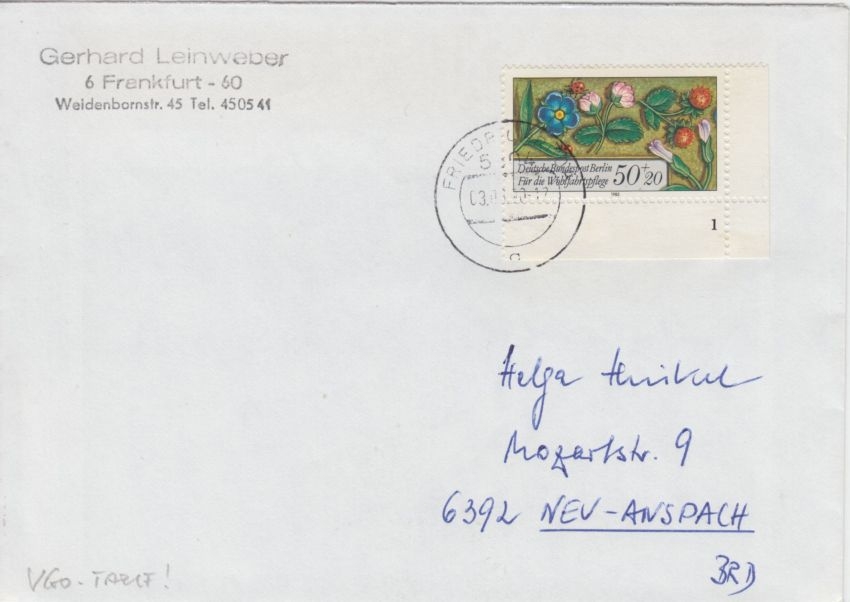 Gerhard Leinweber
6 Frankfurt - 60
Weidenbornstr. 45 Tel. 450541
Deutsche Bundespost Berlin
Für die Wohlfahrtspflege
50+20
1
03.
Helga
Mozartstr. 9
6392 NEU-ANSPACH
BRD
VGO-TARIF!